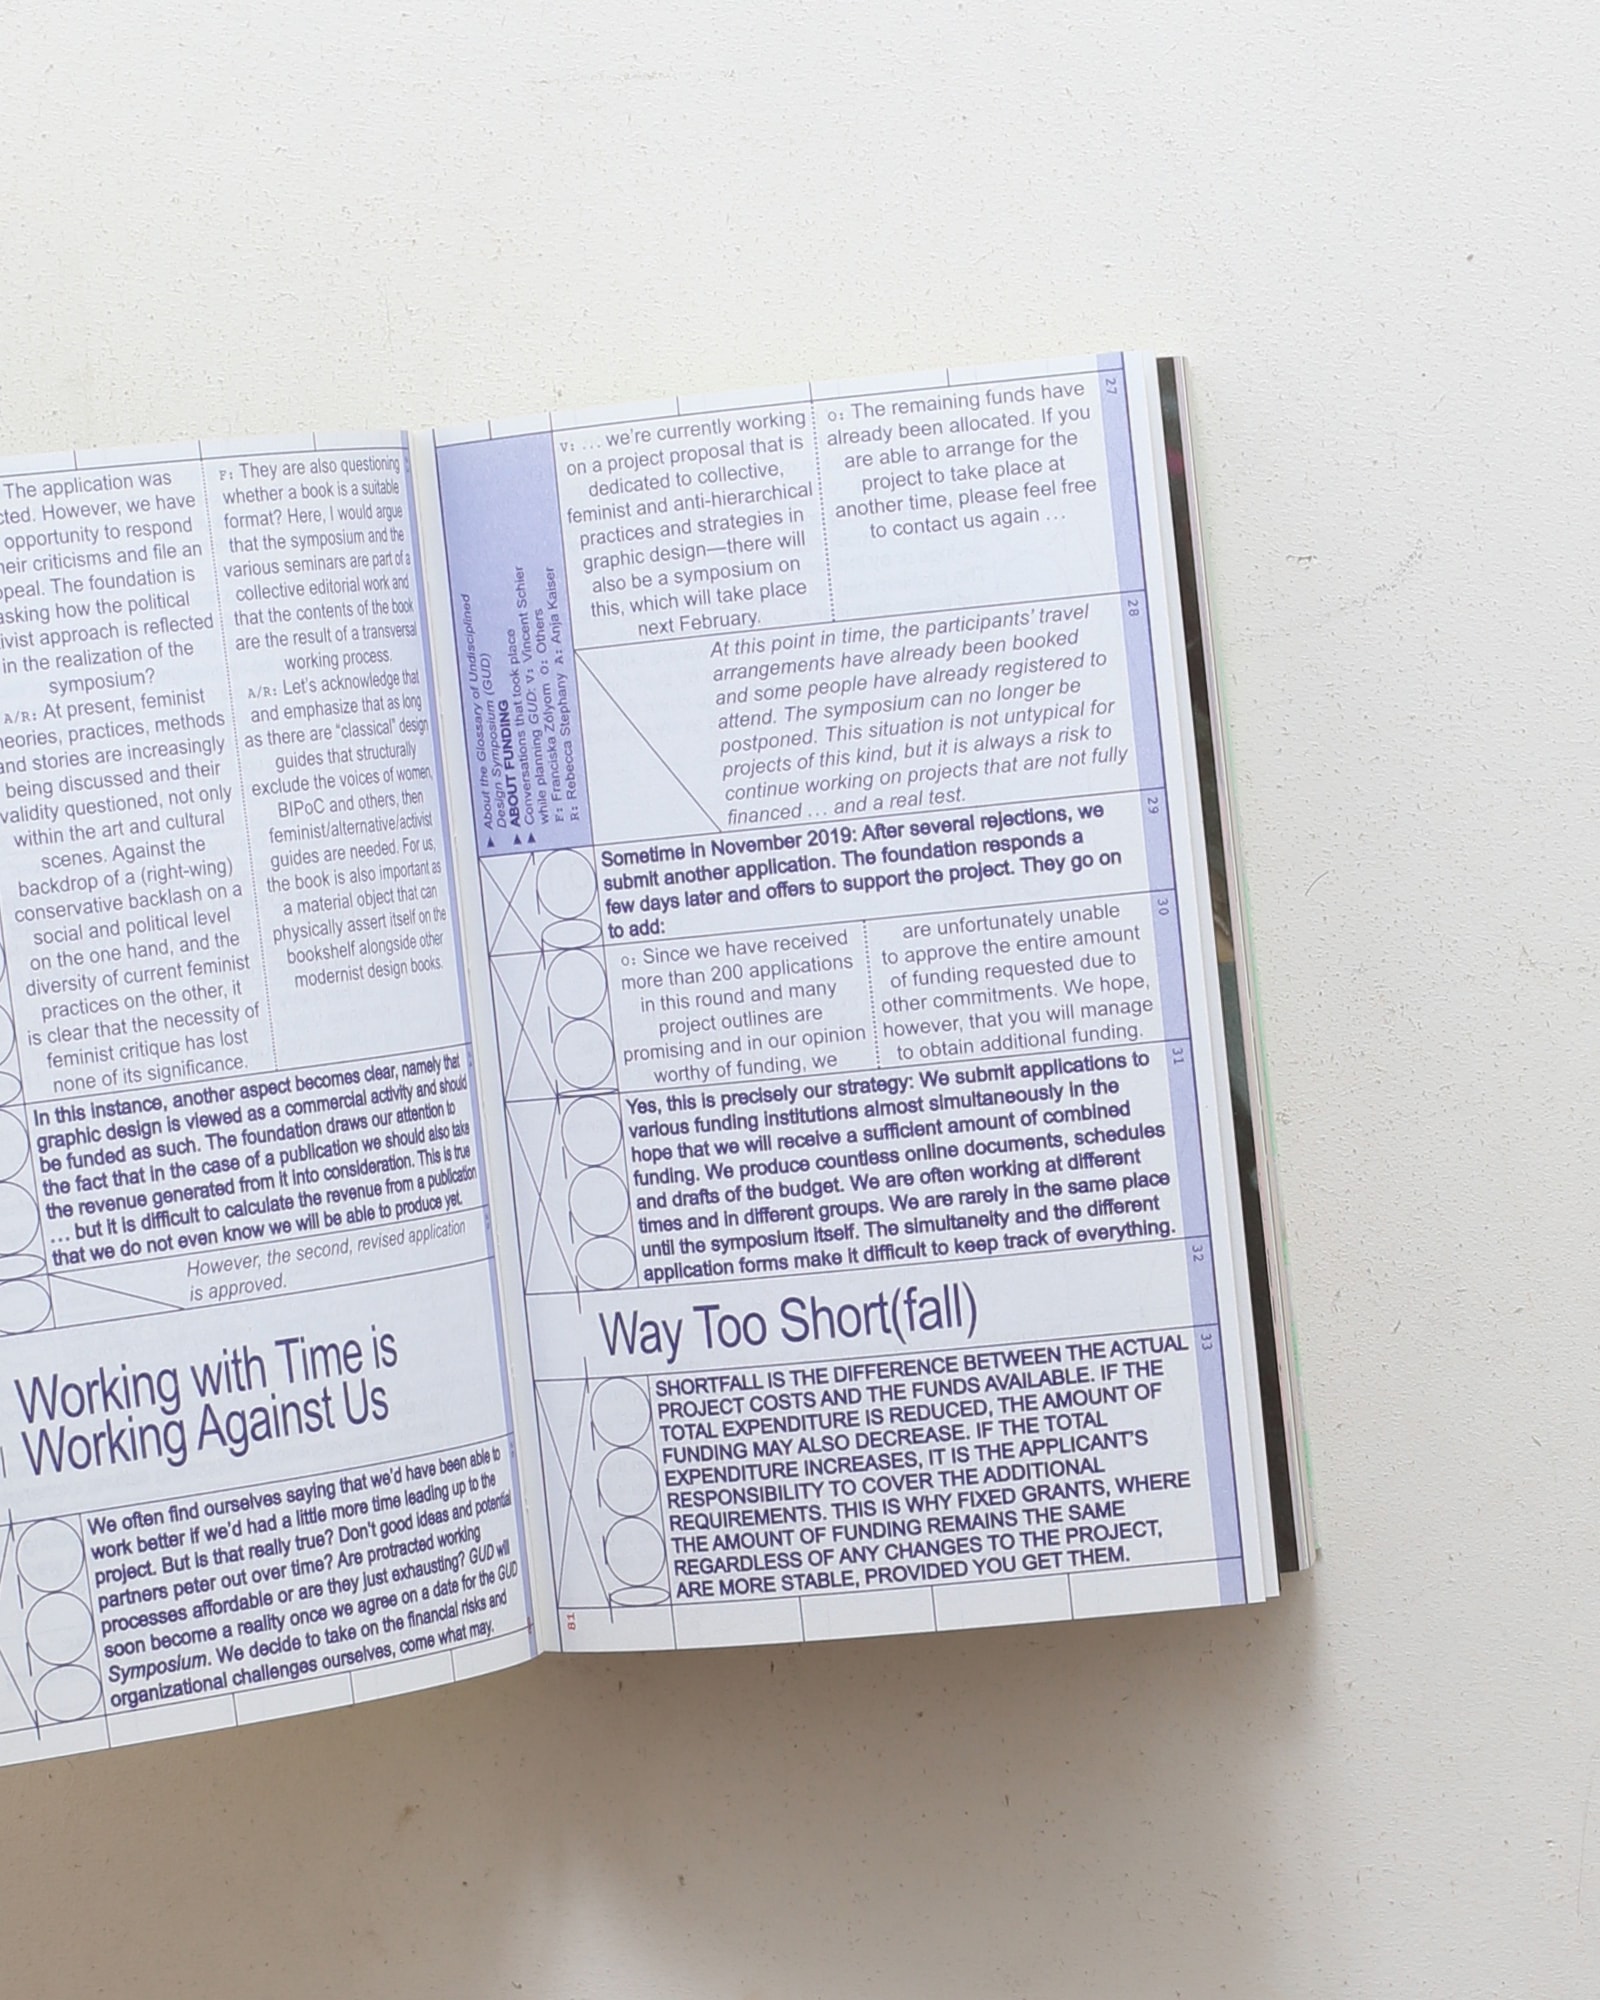 The application was
However, we have
opportunity to respond
their criticisms and file an
appeal. The foundation is
asking how the political
activist approach is reflected
in the realization of the
symposium?
A/R: At present, feminist
theories, practices, methods
and stories are increasingly
being discussed and their
validity questioned, not only
within the art and cultural
scenes. Against the
backdrop of a (right-wing)
conservative backlash on a
social and political level
on the one hand, and the
diversity of current feminist
practices on the other, it
is clear that the necessity of
feminist critique has lost
none of its significance.
F: They are also questioning
whether a book is a suitable
format? Here, I would argue
that the symposium and the
various seminars are part of a
collective editorial work and
that the contents of the book
are the result of a transversal
working process.
A/R: Let's acknowledge that
and emphasize that as long
as there are "classical" design
guides that structurally
exclude the voices of women,
BIPoC and others, then
feminist/alternative/activist
guides are needed. For us,
the book is also important as
a material object that can
physically assert itself on the
bookshelf alongside other
modernist design books.
In this instance, another aspect becomes clear, namely that
graphic design is viewed as a commercial activity and should
be funded as such. The foundation draws our attention to
the fact that in the case of a publication we should also take
the revenue generated from it into consideration. This is true
… but it is difficult to calculate the revenue from a publication
that we do not even know we will be able to produce yet.
However, the second, revised application
is approved.
Working with Time is
Working Against Us
We often find ourselves saying that we'd have been able to
work better if we'd had a little more time leading up to the
project. But is that really true? Don't good ideas and potential
partners peter out over time? Are protracted working
processes affordable or are they just exhausting? GUD will
soon become a reality once we agree on a date for the GUD
Symposium. We decide to take on the financial risks and
organizational challenges ourselves, come what may.
About the Glossary of Undisciplined
Design Symposium (GUD)
▶ ABOUT FUNDING
▶ Conversations that took place
while planning GUD: V: Vincent Schier
F: Franciska Zólyom O: Others
R: Rebecca Stephany A: Anja Kaiser
27
V: … we're currently working
on a project proposal that is
dedicated to collective,
feminist and anti-hierarchical
practices and strategies in
graphic design—there will
also be a symposium on
this, which will take place
next February.
O: The remaining funds have
already been allocated. If you
are able to arrange for the
project to take place at
another time, please feel free
to contact us again …
28
At this point in time, the participants' travel
arrangements have already been booked
and some people have already registered to
attend. The symposium can no longer be
postponed. This situation is not untypical for
projects of this kind, but it is always a risk to
continue working on projects that are not fully
financed … and a real test.
29
Sometime in November 2019: After several rejections, we
submit another application. The foundation responds a
few days later and offers to support the project. They go on
to add:
30
O: Since we have received
more than 200 applications
in this round and many
project outlines are
promising and in our opinion
worthy of funding, we
are unfortunately unable
to approve the entire amount
of funding requested due to
other commitments. We hope,
however, that you will manage
to obtain additional funding.
31
Yes, this is precisely our strategy: We submit applications to
various funding institutions almost simultaneously in the
hope that we will receive a sufficient amount of combined
funding. We produce countless online documents, schedules
and drafts of the budget. We are often working at different
times and in different groups. We are rarely in the same place
until the symposium itself. The simultaneity and the different
application forms make it difficult to keep track of everything.
32
Way Too Short(fall)
33
SHORTFALL IS THE DIFFERENCE BETWEEN THE ACTUAL
PROJECT COSTS AND THE FUNDS AVAILABLE. IF THE
TOTAL EXPENDITURE IS REDUCED, THE AMOUNT OF
FUNDING MAY ALSO DECREASE. IF THE TOTAL
EXPENDITURE INCREASES, IT IS THE APPLICANT'S
RESPONSIBILITY TO COVER THE ADDITIONAL
REQUIREMENTS. THIS IS WHY FIXED GRANTS, WHERE
THE AMOUNT OF FUNDING REMAINS THE SAME
REGARDLESS OF ANY CHANGES TO THE PROJECT,
ARE MORE STABLE, PROVIDED YOU GET THEM.
81